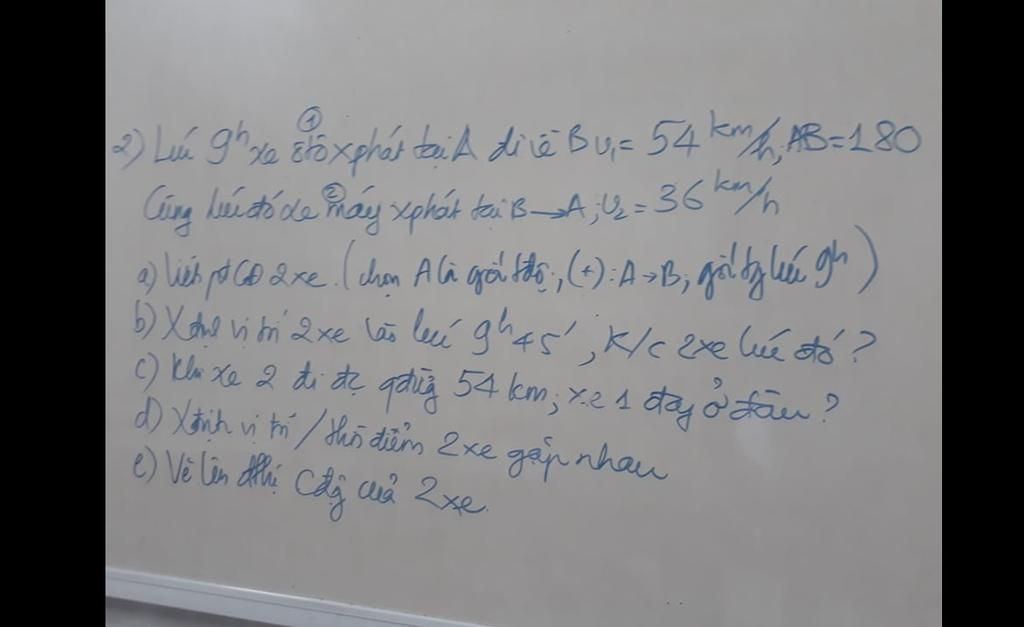 2) Lúc 9h xe ôtô ① xphát tại A đi về B v₁= 54 km/h, AB=180
Cũng lúc đó xe máy ② xphát tại B → A, v₂ = 36 km/h
a) Viết pt CĐ 2xe. (chọn A là gốc tđộ, (+): A→B, gốc tg lúc 9h)
b) Xđịnh vị trí 2xe vào lúc 9h45', K/c 2xe lúc đó?
c) Khi xe 2 đi đc qđường 54 km, xe 1 đang ở đâu?
d) Xđịnh vị trí / thời điểm 2xe gặp nhau
e) Vẽ lên đthị Cđộng của 2xe.